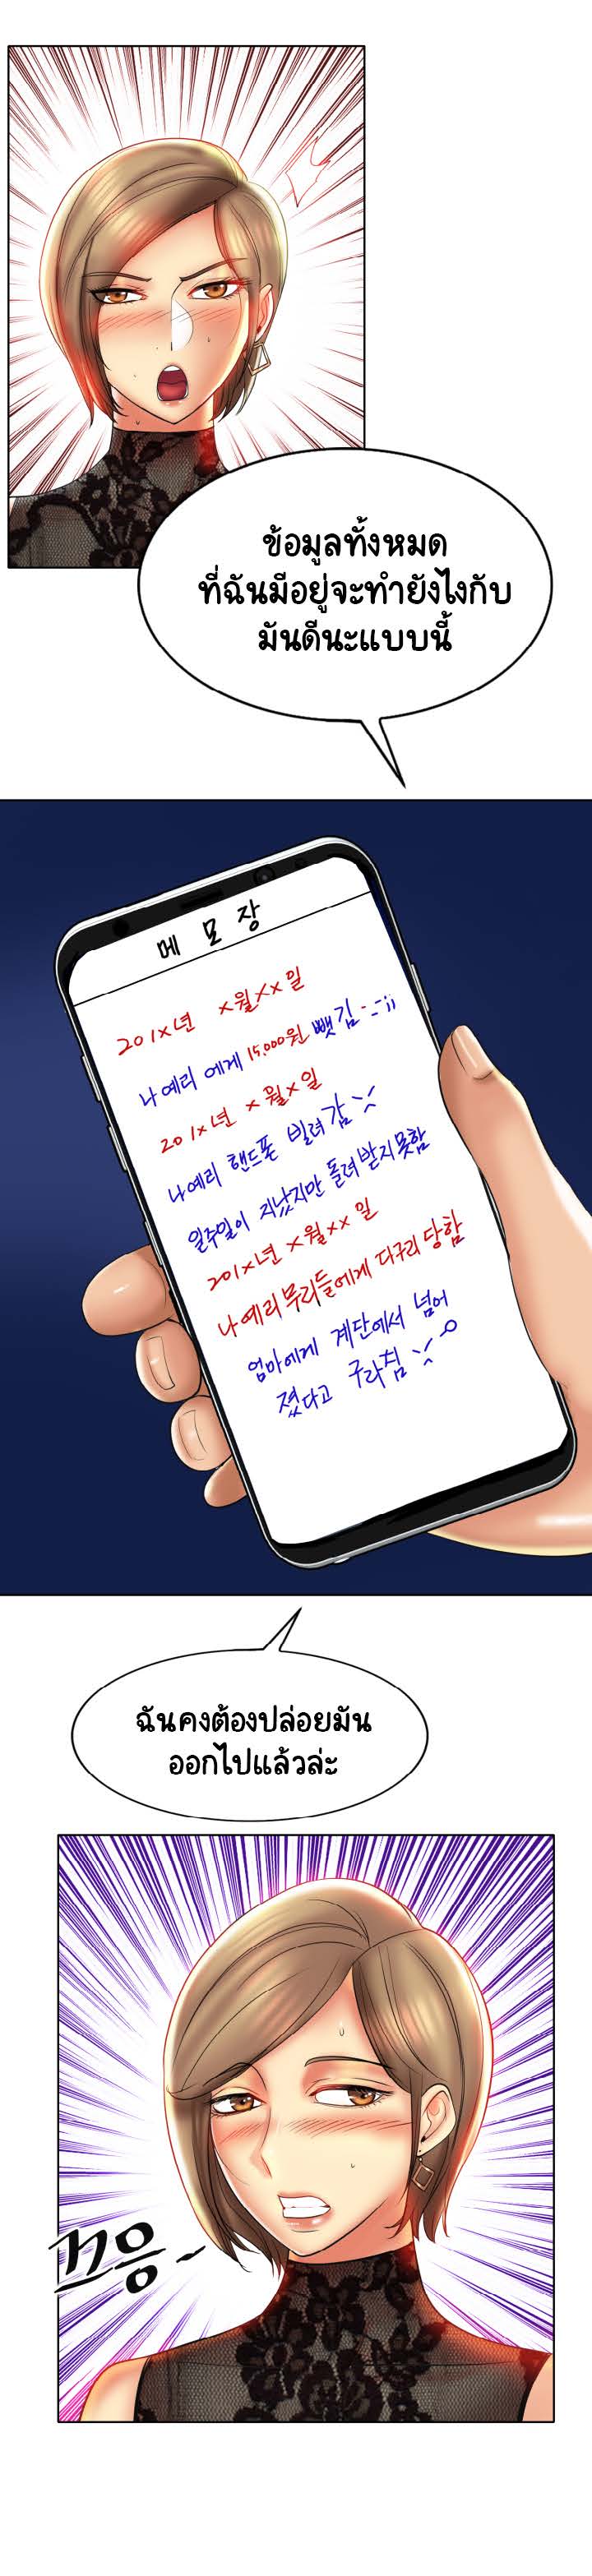 ข้อมูลทั้งหมด
ที่ฉันมีอยู่จะทำยังไงกับ
มันดีนะแบบนี้
메모장
201X년 X월XX일
나예리 에게 15,000원 뺏김
201X년 X월X일
나예리 핸드폰 빌려감
일주일이 지났지만 돌려받지못함
201X년 X월XX일
나예리무리들에게 다구리당함
엄마에게 계단에서 넘어
졌다고 구라침
ฉันคงต้องปล่อยมัน
ออกไปแล้วล่ะ
끄응~